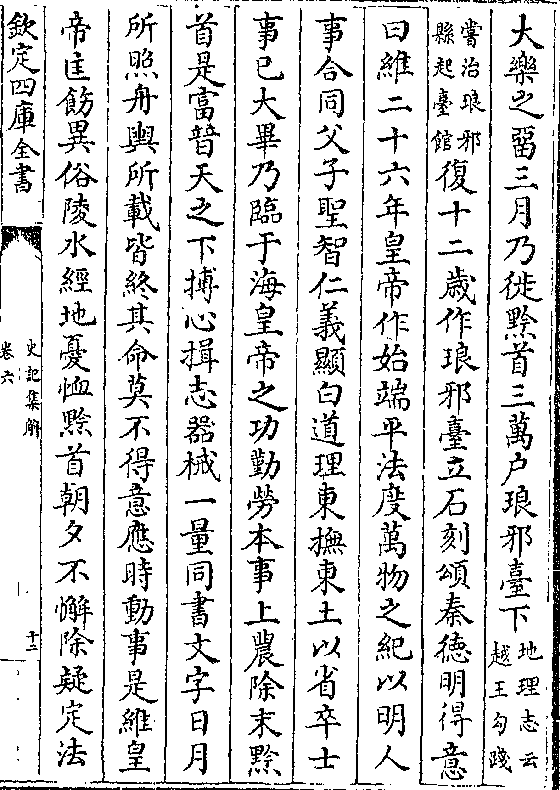 大樂之㽞三月乃徙黔首三萬户琅邪臺下地理志云越王勾踐
嘗治琅邪縣起臺館復十二歲作琅邪臺立石刻頌秦德明得意
曰維二十六年皇帝作始端平法度萬物之紀以明人
事合同父子聖智仁義顯白道理東撫東土以省卒士
事已大畢乃臨于海皇帝之功勤勞本事上農除末黔
首是富普天之下搏心揖志器械一量同書文字日月
所照舟輿所載皆終其命莫不得意應時動事是維皇
帝匡飭異俗陵水經地憂恤黔首朝夕不懈除疑定法
欽定四庫全書
史記集解
卷六
十二